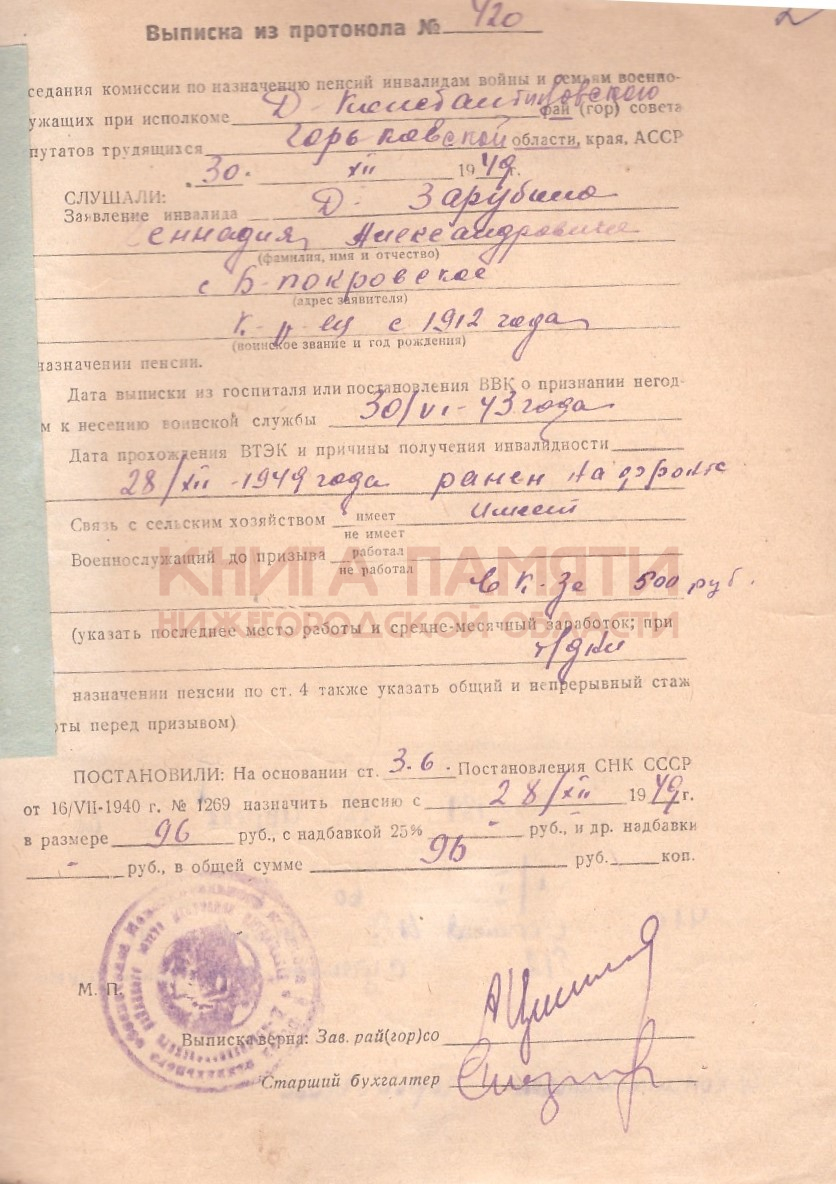 2
Выписка из протокола № 420
седания комиссии по назначению пенсий инвалидам войны и семьям военно-
ужащих при исполкоме Д-Константиновского рай (гор) совета
путатов трудящихся Горьковской области, края, АССР
30. XII 1949 г.
СЛУШАЛИ:
Заявление инвалида Д. Зарубина
Геннадия Александровича
(фамилия, имя и отчество)
с Б-покровское
(адрес заявителя)
с 1912 года
(воинское звание и год рождения)
назначении пенсии.
Дата выписки из госпиталя или постановления ВВК о признании негод-
м к несению воинской службы 30/VI-43 года
Дата прохождения ВТЭК и причины получения инвалидности
28/XII-1949 года ранен на фронте
Связь с сельским хозяйством имеет имеет
не имеет
Военнослужащий до призыва работал
не работал
КНИГА ПАМЯТИ
в к-зе 500 руб.
НИЖЕГОРОДСКОЙ ОБЛАСТИ
(указать последнее место работы и средне-месячный заработок; при
назначении пенсии по ст. 4 также указать общий и непрерывный стаж
оты перед призывом)
ПОСТАНОВИЛИ: На основании ст. 3.6. Постановления СНК СССР
от 16/VII-1940 г. № 1269 назначить пенсию с 28/XII 1949 г.
в размере 96 руб., с надбавкой 25% - руб., и др. надбавки
- руб., в общей сумме 96 руб. коп.
М. П.
Выписка верна: Зав. рай(гор)со
Старший бухгалтер